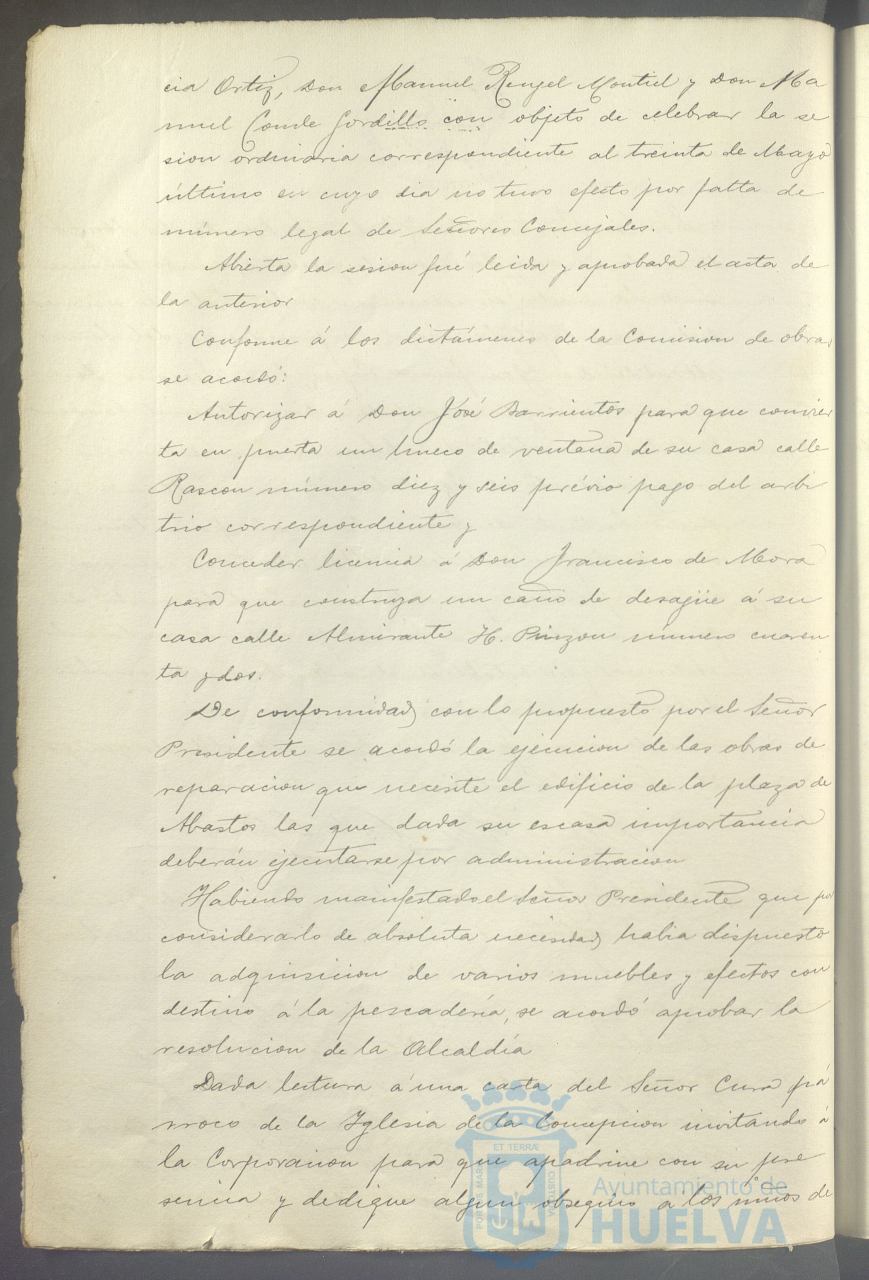 cia Ortiz, Don Manuel Rengel Montiel y Don Ma
nuel Conde Gordillo con objeto de celebrar la se
sion ordinaria correspondiente al treinta de Mayo
último en cuyo dia no tuvo efecto por falta de
número legal de Señores Concejales.
Abierta la sesion fué leida y aprobada el acta de
la anterior
Conforme á los dictámenes de la Comision de obras
se acordó:
Autorizar á Don José Barrientos para que convier
ta en puerta un hueco de ventana de su casa calle
Rascon número diez y seis prévio pago del arbi
trio correspondiente y
Conceder licencia á Don Francisco de Mora
para que construya un caño de desagüe á su
casa calle Almirante H. Pinzon número cuaren
ta y dos.
De conformidad con lo propuesto por el Señor
Presidente se acordó la ejecucion de las obras de
reparacion que necesite el edificio de la plaza de
Abastos las que dada su escasa importancia
deberán ejecutarse por administracion
Habiendo manifestado el Señor Presidente que por
considerarlo de absoluta necesidad habia dispuesto
la adquisicion de varios muebles y efectos con
destino á la pescadería, se acordó aprobar la
resolucion de la Alcaldía
Dada lectura á una carta del Señor Cura pá
rroco de la Iglesia de la Concepcion invitando á
la Corporacion para que apadrine con su pre
sencia y dedique algun obsequio a los niños de
PORTUS MARIS ET TERRÆ CUSTODIA
Ayuntamiento de
HUELVA